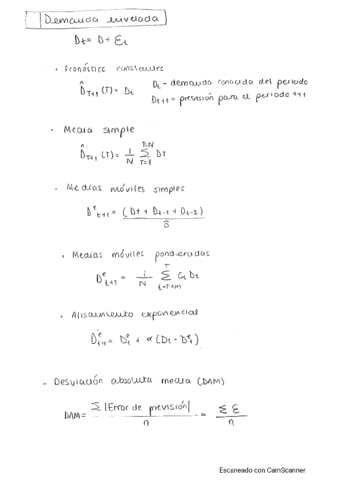 Demanda nivelada
Dt = D + Et
• Pronóstico constantes
D̂T+1 (T) = Dt
Dt – demanda conocida del periodo
Dt+1 = previsión para el periodo t+1
• Media simple
D̂T+1 (T) = 1/N Σ(T=1, T=N) DT
• Medias móviles simples
Dᵉt+1 = (Dt + Dt-1 + Dt-2) / 3
• Medias móviles ponderadas
Dᵉt+1 = 1/N Σ(t=T-N+1, T) Ct Dt
• Alisamiento exponencial
Dᵉt+1 = Dᵉt + α (Dt - Dᵉt)
– Desviación absoluta media (DAM)
DAM = Σ |Error de previsión| / n = Σ E / n
Escaneado con CamScanner